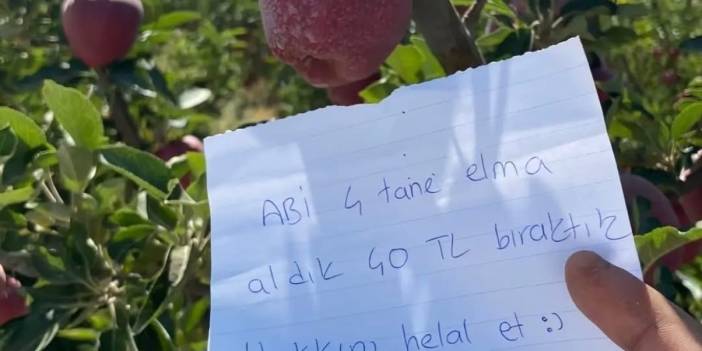 ABİ 4 tane elma
aldık 40 TL bıraktık
Hakkını helal et :)